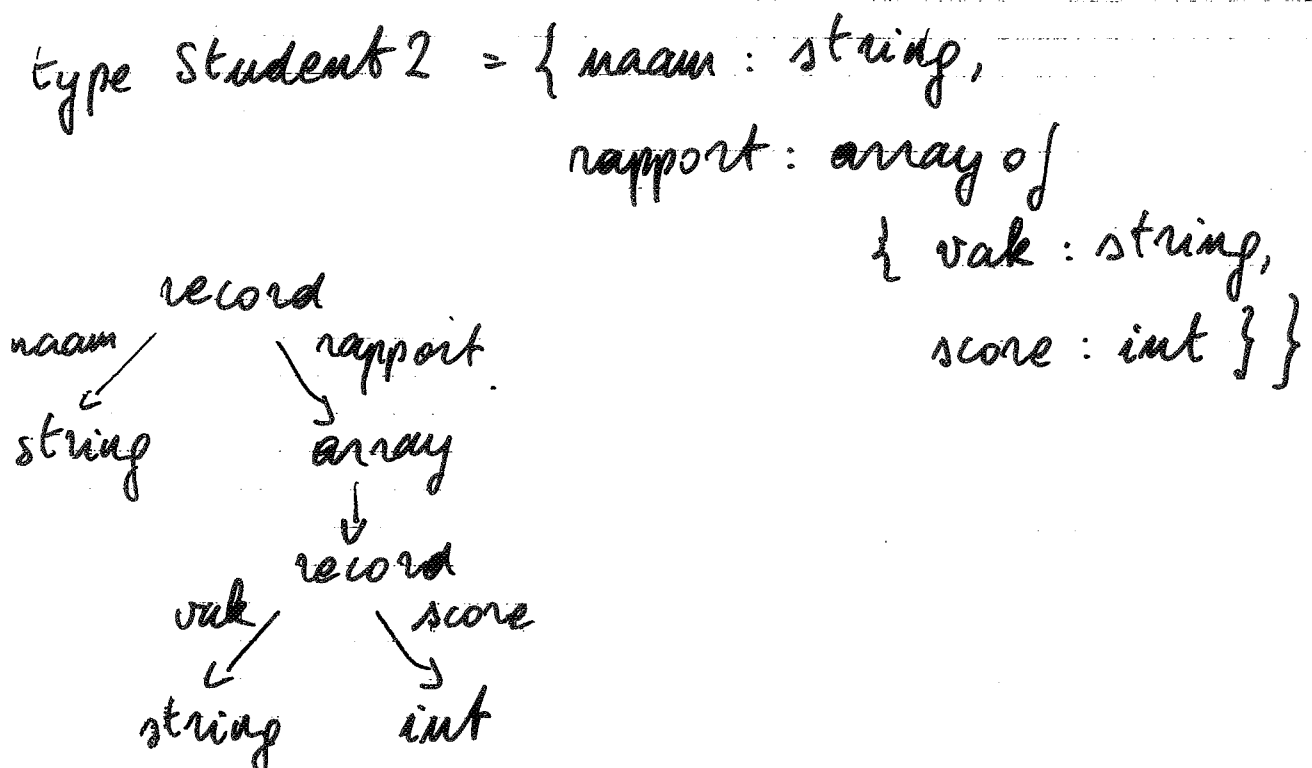 type Student2 = { naam : string,
rapport : array of
{ vak : string,
score : int } }
record
naam rapport
string array
record
vak score
string int